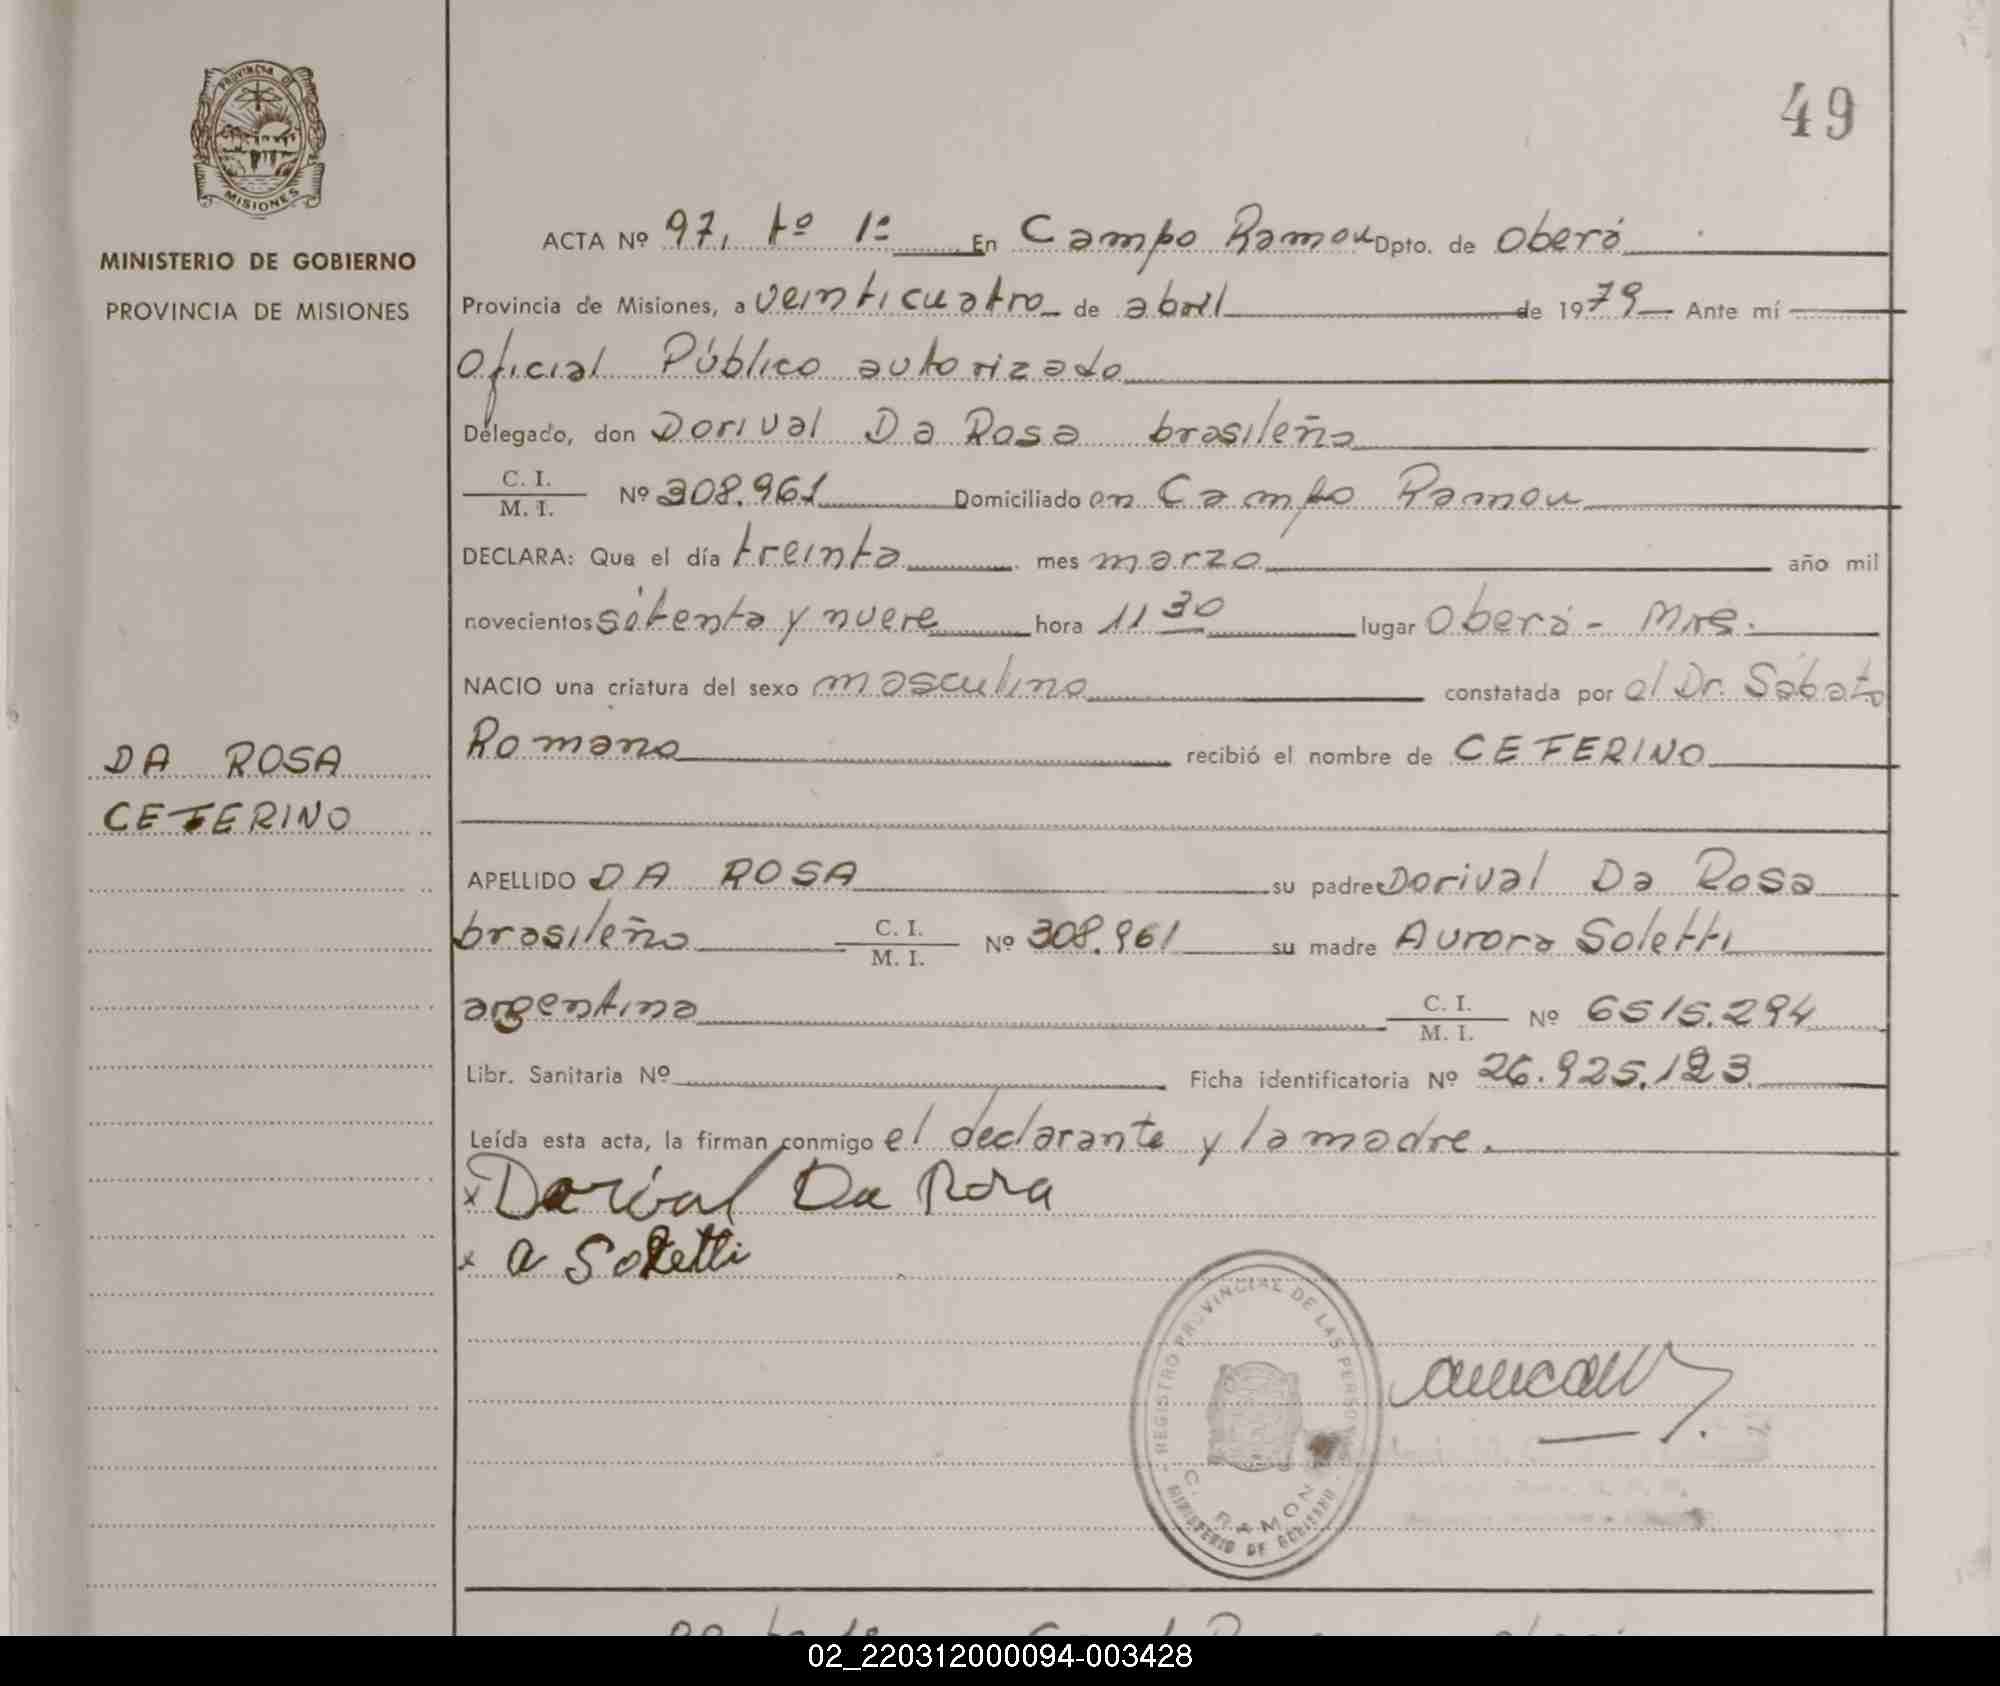 PROVINCIA DE
MISIONES
MINISTERIO DE GOBIERNO
PROVINCIA DE MISIONES
DA ROSA
CEFERINO
49
ACTA Nº 97, tº 1º En Campo Ramon Dpto. de Oberá
Provincia de Misiones, a veinticuatro de abril de 1979 Ante mí
Oficial Público autorizado
Delegado, don Dorival Da Rosa brasileño
C. I.
M. I. Nº 308.961 Domiciliado en Campo Ramon
DECLARA: Que el día treinta mes marzo año mil
novecientos setenta y nueve hora 11 30 lugar Oberá - Mnes.
NACIO una criatura del sexo masculino constatada por el Dr. Sábato
Romano recibió el nombre de CEFERINO
APELLIDO DA ROSA su padre Dorival Da Rosa
brasileño C. I. M. I. Nº 308.961 su madre Aurora Soletti
argentina C. I. M. I. Nº 6515.294
Libr. Sanitaria Nº Ficha identificatoria Nº 26.925.123
Leída esta acta, la firman conmigo el declarante y la madre.
x Dorival Da Rosa
x a Soletti
REGISTRO PROVINCIAL DE LAS PERSONAS
C. RAMON
MINISTERIO DE GOBIERNO
02_220312000094-003428